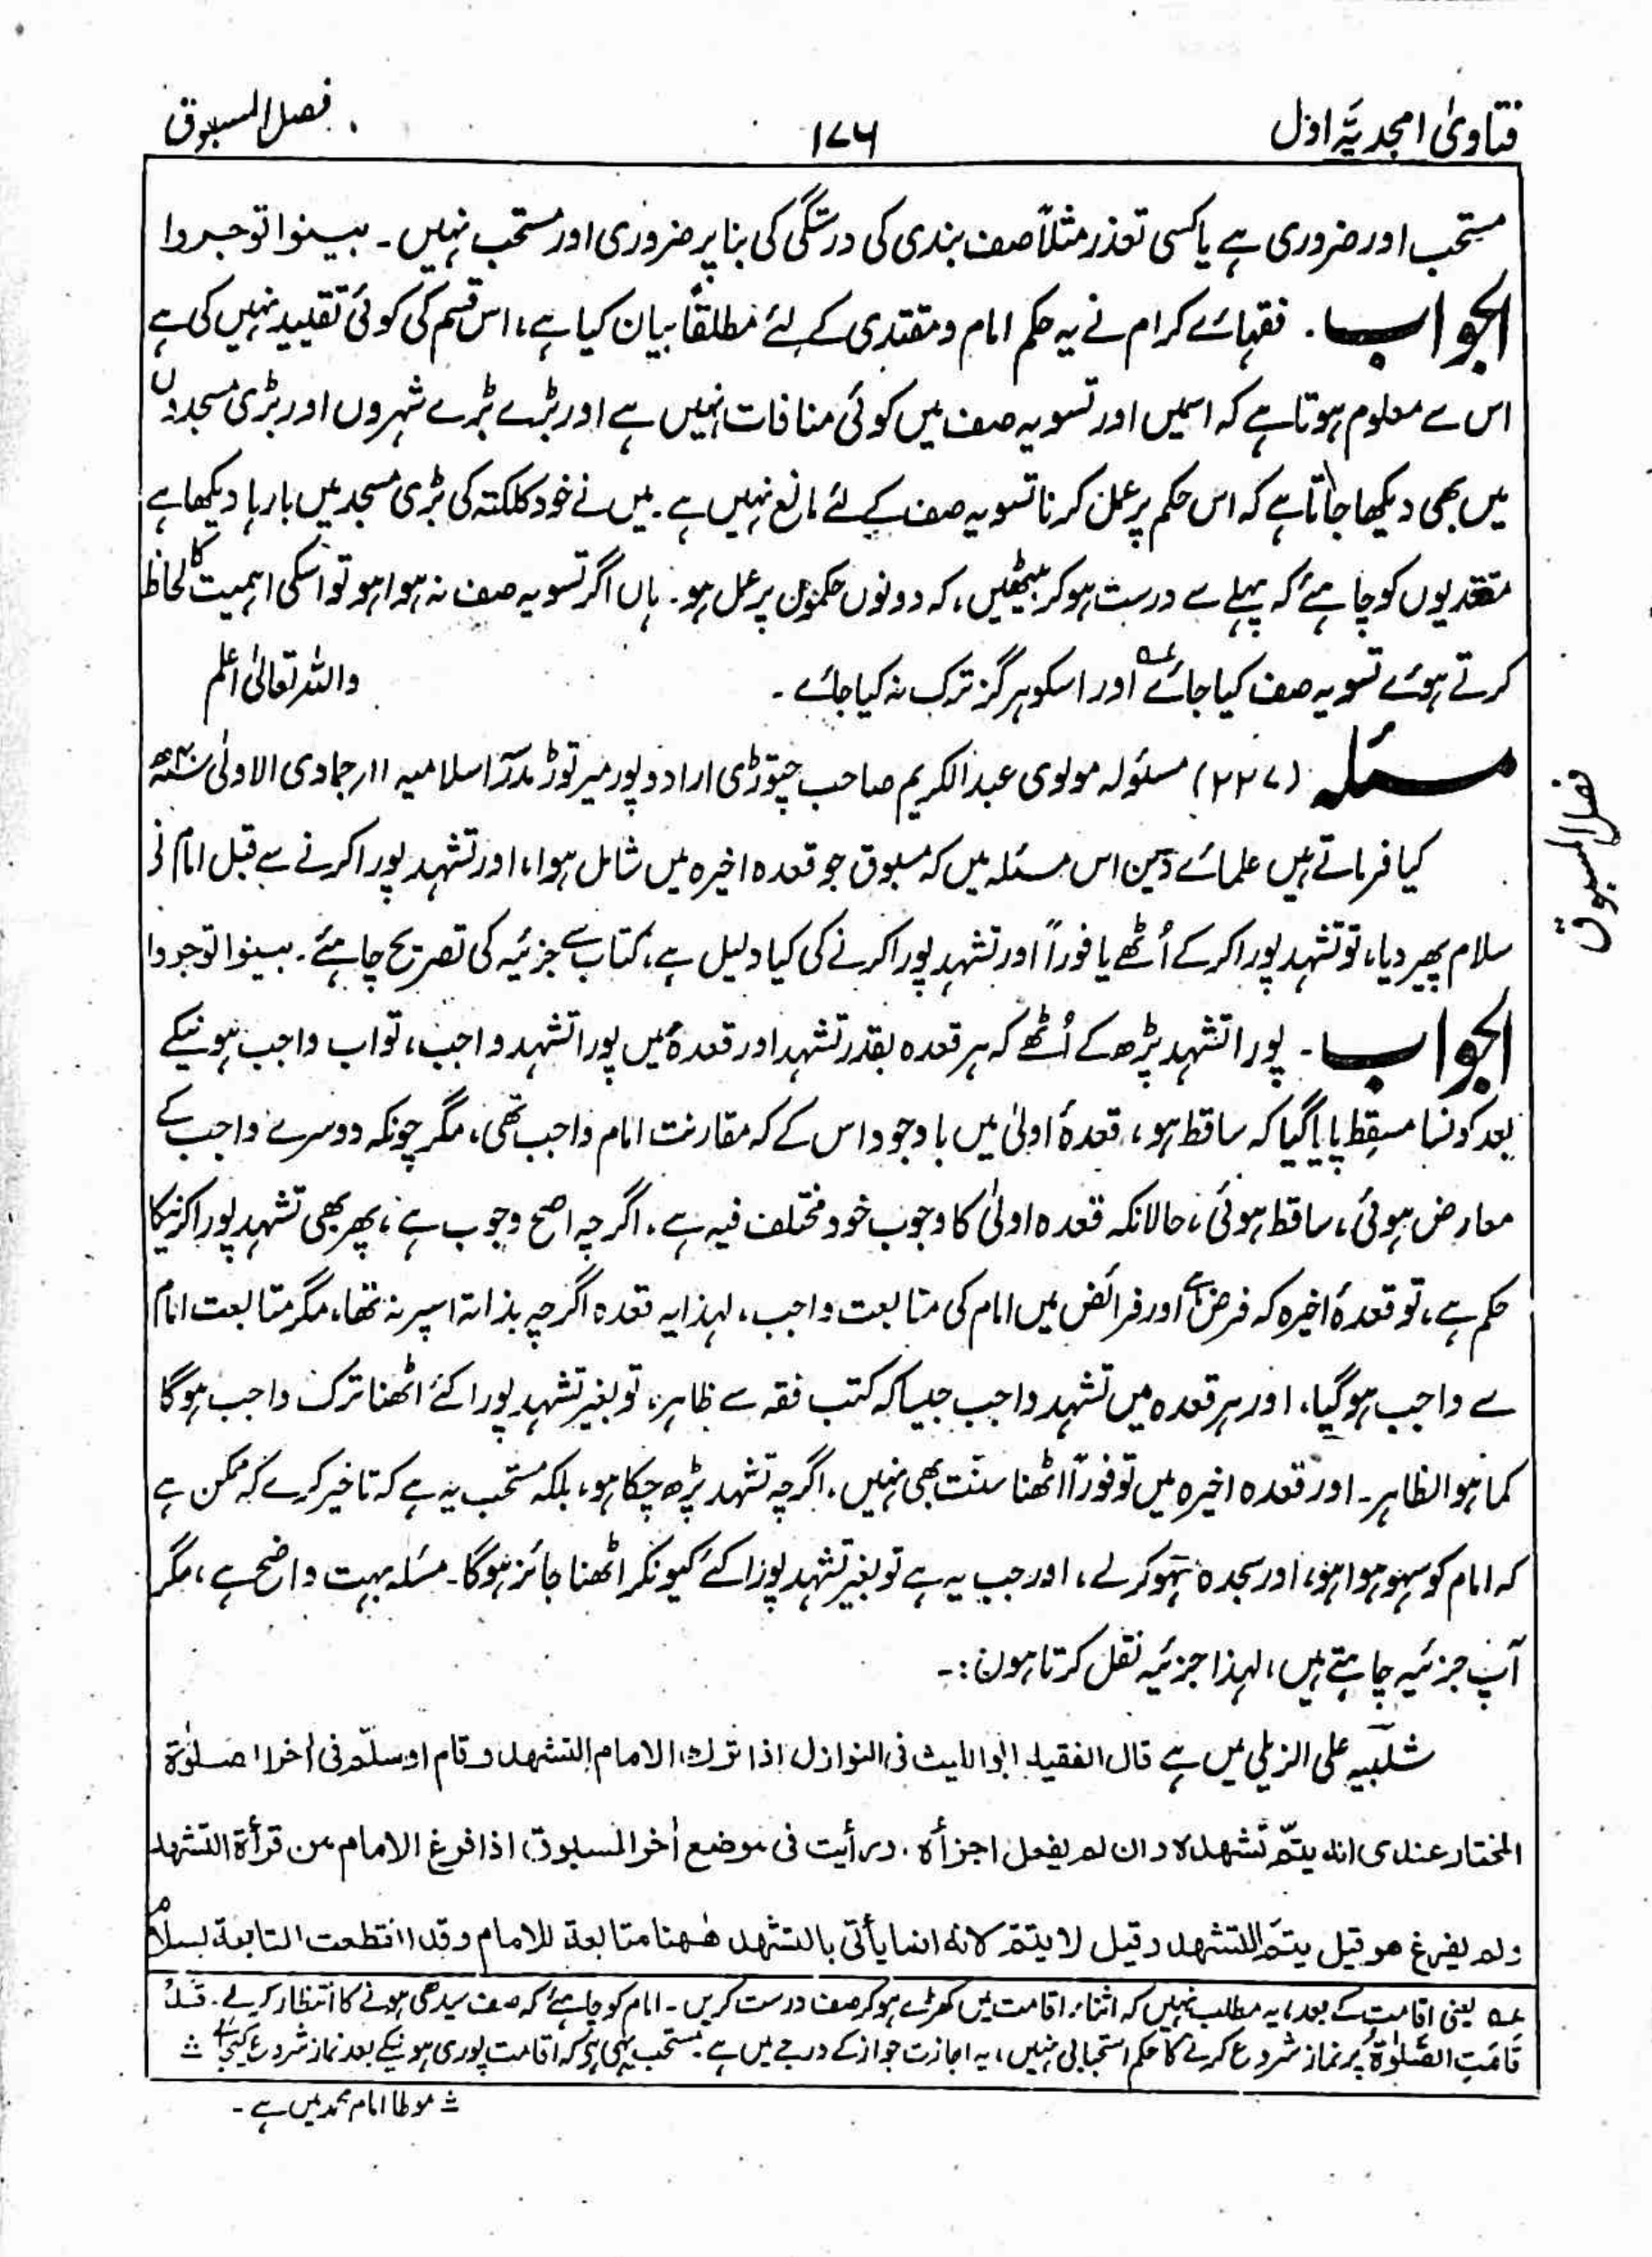 فتاویٰ امجدیَّہ اول
۱۷۶
فصل المسبوق
مستحب اور ضروری ہے یا کسی تعذر مثلاً صف بندی کی درستگی کی بنا پر ضروری اور مستحب نہیں ۔ بینوا توجروا
الجواب ۔ فقہائے کرام نے یہ حکم امام و مقتدی کے لئے مطلقاً بیان کیا ہے، اس قسم کی کوئی تقیید نہیں کی ہے
اس سے معلوم ہوتا ہے کہ اسمیں اور تسویہ صف میں کوئی منافات نہیں ہے اور بڑے بڑے شہروں اور بڑی مسجدوں
میں بھی دیکھا جاتا ہے کہ اس حکم پر عمل کرنا تسویہ صف کے لئے مانع نہیں ہے ۔ میں نے خود کلکتہ کی بڑی مسجد میں بارہا دیکھا ہے
مقتدیوں کو چاہئے کہ پہلے سے درست ہو کر بیٹھیں، کہ دونوں حکموں پر عمل ہو ۔ ہاں اگر تسویہ صف نہ ہوا ہو تو اسکی اہمیت کا لحاظ
کرتے ہوئے تسویہ صف کیا جائے عہ اور اسکو ہرگز ترک نہ کیا جائے ۔ واللہ تعالیٰ اعلم
مسئلہ (۲۲۷) مسئولہ مولوی عبدالکریم صاحب چتوڑی اراد دیپور میرتوڑ مدرسہ اسلامیہ ۱۱ر جمادی الاولیٰ
فصل المسبوق
کیا فرماتے ہیں علمائے دین اس مسئلہ میں کہ مسبوق جو قعدہ اخیرہ میں شامل ہوا، اور تشہد پورا کرنے سے قبل امام نے
سلام پھیر دیا، تو تشہد پورا کرکے اُٹھے یا فوراً اور تشہد پورا کرنے کی کیا دلیل ہے، کتاب سے جزئیہ کی تصریح چاہئے ۔ بینوا توجروا
الجواب ۔ پورا تشہد پڑھ کے اُٹھے کہ ہر قعدہ بقدر تشہد اور قعدہ میں پورا تشہد واجب، تو اب واجب ہونیکے
بعد کونسا مسقِط پایا گیا کہ ساقط ہو، قعدۂ اولیٰ میں باوجود اس کے کہ مقارنت امام واجب تھی، مگر چونکہ دوسرے واجب کے
معارض ہوئی، ساقط ہوئی، حالانکہ قعدہ اولیٰ کا وجوب خود مختلف فیہ ہے ۔ اگرچہ اصح وجوب ہے، پھر بھی تشہد پورا کرنیکا
حکم ہے، تو قعدۂ اخیرہ کہ فرض ہے اور فرائض میں امام کی متابعت واجب، لہذا یہ قعدہ اگرچہ بذاتہ اسپر نہ تھا، مگر متابعت امام
سے واجب ہوگیا، اور ہر قعدہ میں تشہد واجب جیسا کہ کتب فقہ سے ظاہر، تو بغیر تشہد پورا کئے اٹھنا ترک واجب ہوگا
کما ہو الظاہر ۔ اور قعدہ اخیرہ میں تو فوراً اٹھنا سنّت بھی نہیں ۔ اگرچہ تشہد پڑھ چکا ہو، بلکہ مستحب یہ ہے کہ تاخیر کرے کہ ممکن ہے
کہ امام کو سہو ہوا ہو، اور سجدہ سہو کر لے، اور جب یہ ہے تو بغیر تشہد پورا کئے کیونکر اٹھنا جائز ہوگا ۔ مسئلہ بہت واضح ہے، مگر
آپ جزئیہ چاہتے ہیں، لہذا جزئیہ نقل کرتا ہوں :۔
شلبیہ علی الزیلی میں ہے قال الفقیہ ابو اللیث فی النوازل اذا ترک الامام التشہد و قام او سلّم فی اٰخر الصلوٰۃ
المختار عندی انہ یتمّ تشھدہ و ان لم یفعل اجزأہ ۔ و رأیت فی موضع اٰخر المسبوق اذا فرغ الامام من قرأۃ التشھد
و لم یفرغ ھو قیل یتمّ التشھد و قیل لا یتمّ لانہ انما یأتی بالتشھد ھٰھنا متابعۃ للامام و قد انقطعت المتابعۃ بسلام
عہ یعنی اقامت کے بعد، یہ مطلب نہیں کہ اثناء اقامت میں کھڑے ہو کر صف درست کریں ۔ امام کو چاہئے کہ صف سیدھی ہونے کا انتظار کرلے ۔ قَدْ
قَامَتِ الصَّلوٰۃُ پر نماز شروع کرنے کا حکم استحبابی نہیں، یہ اجازت جواز کے درجے میں ہے مستحب یہی ہے کہ اقامت پوری ہونیکے بعد نماز شروع کیجائے ؂
؂ موطا امام محمد میں ہے ۔